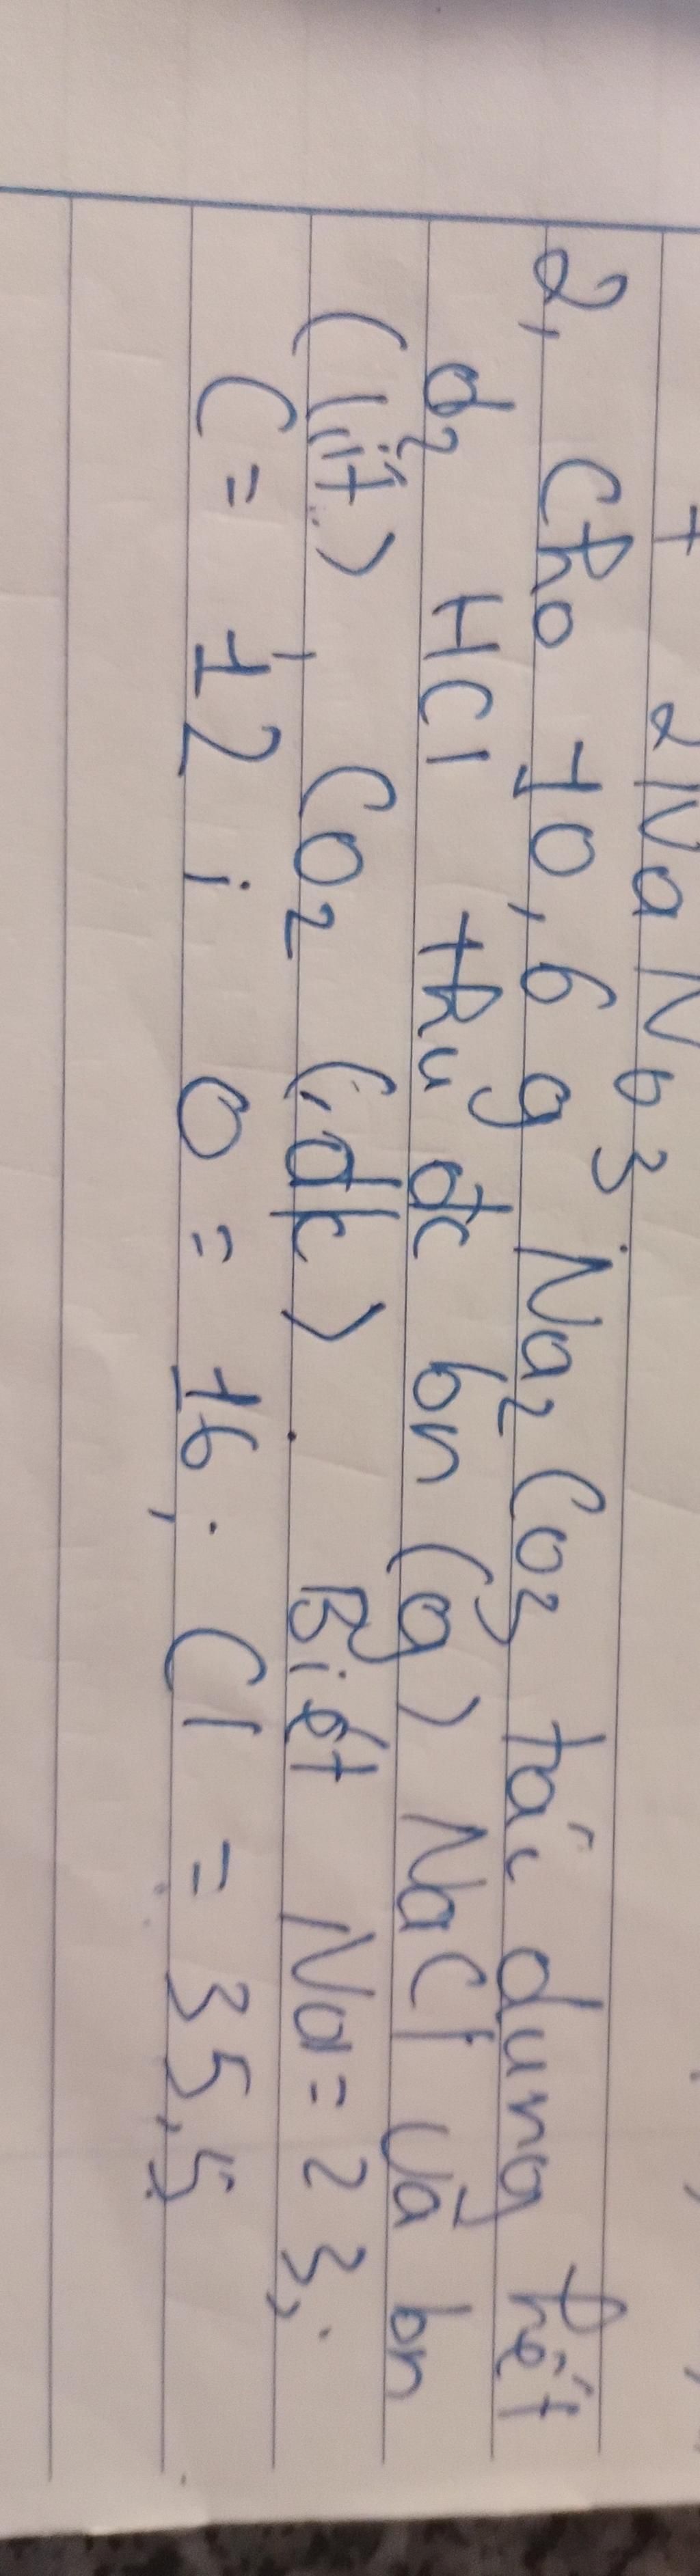 + 2NaNO3
2, Cho 10,6 g Na2CO3 tác dung hết
d2 HCl thu đc bn (g) NaCl và bn
(lít) CO2 (đk). Biết Na = 23,
C = 12; O = 16, Cl = 35,5